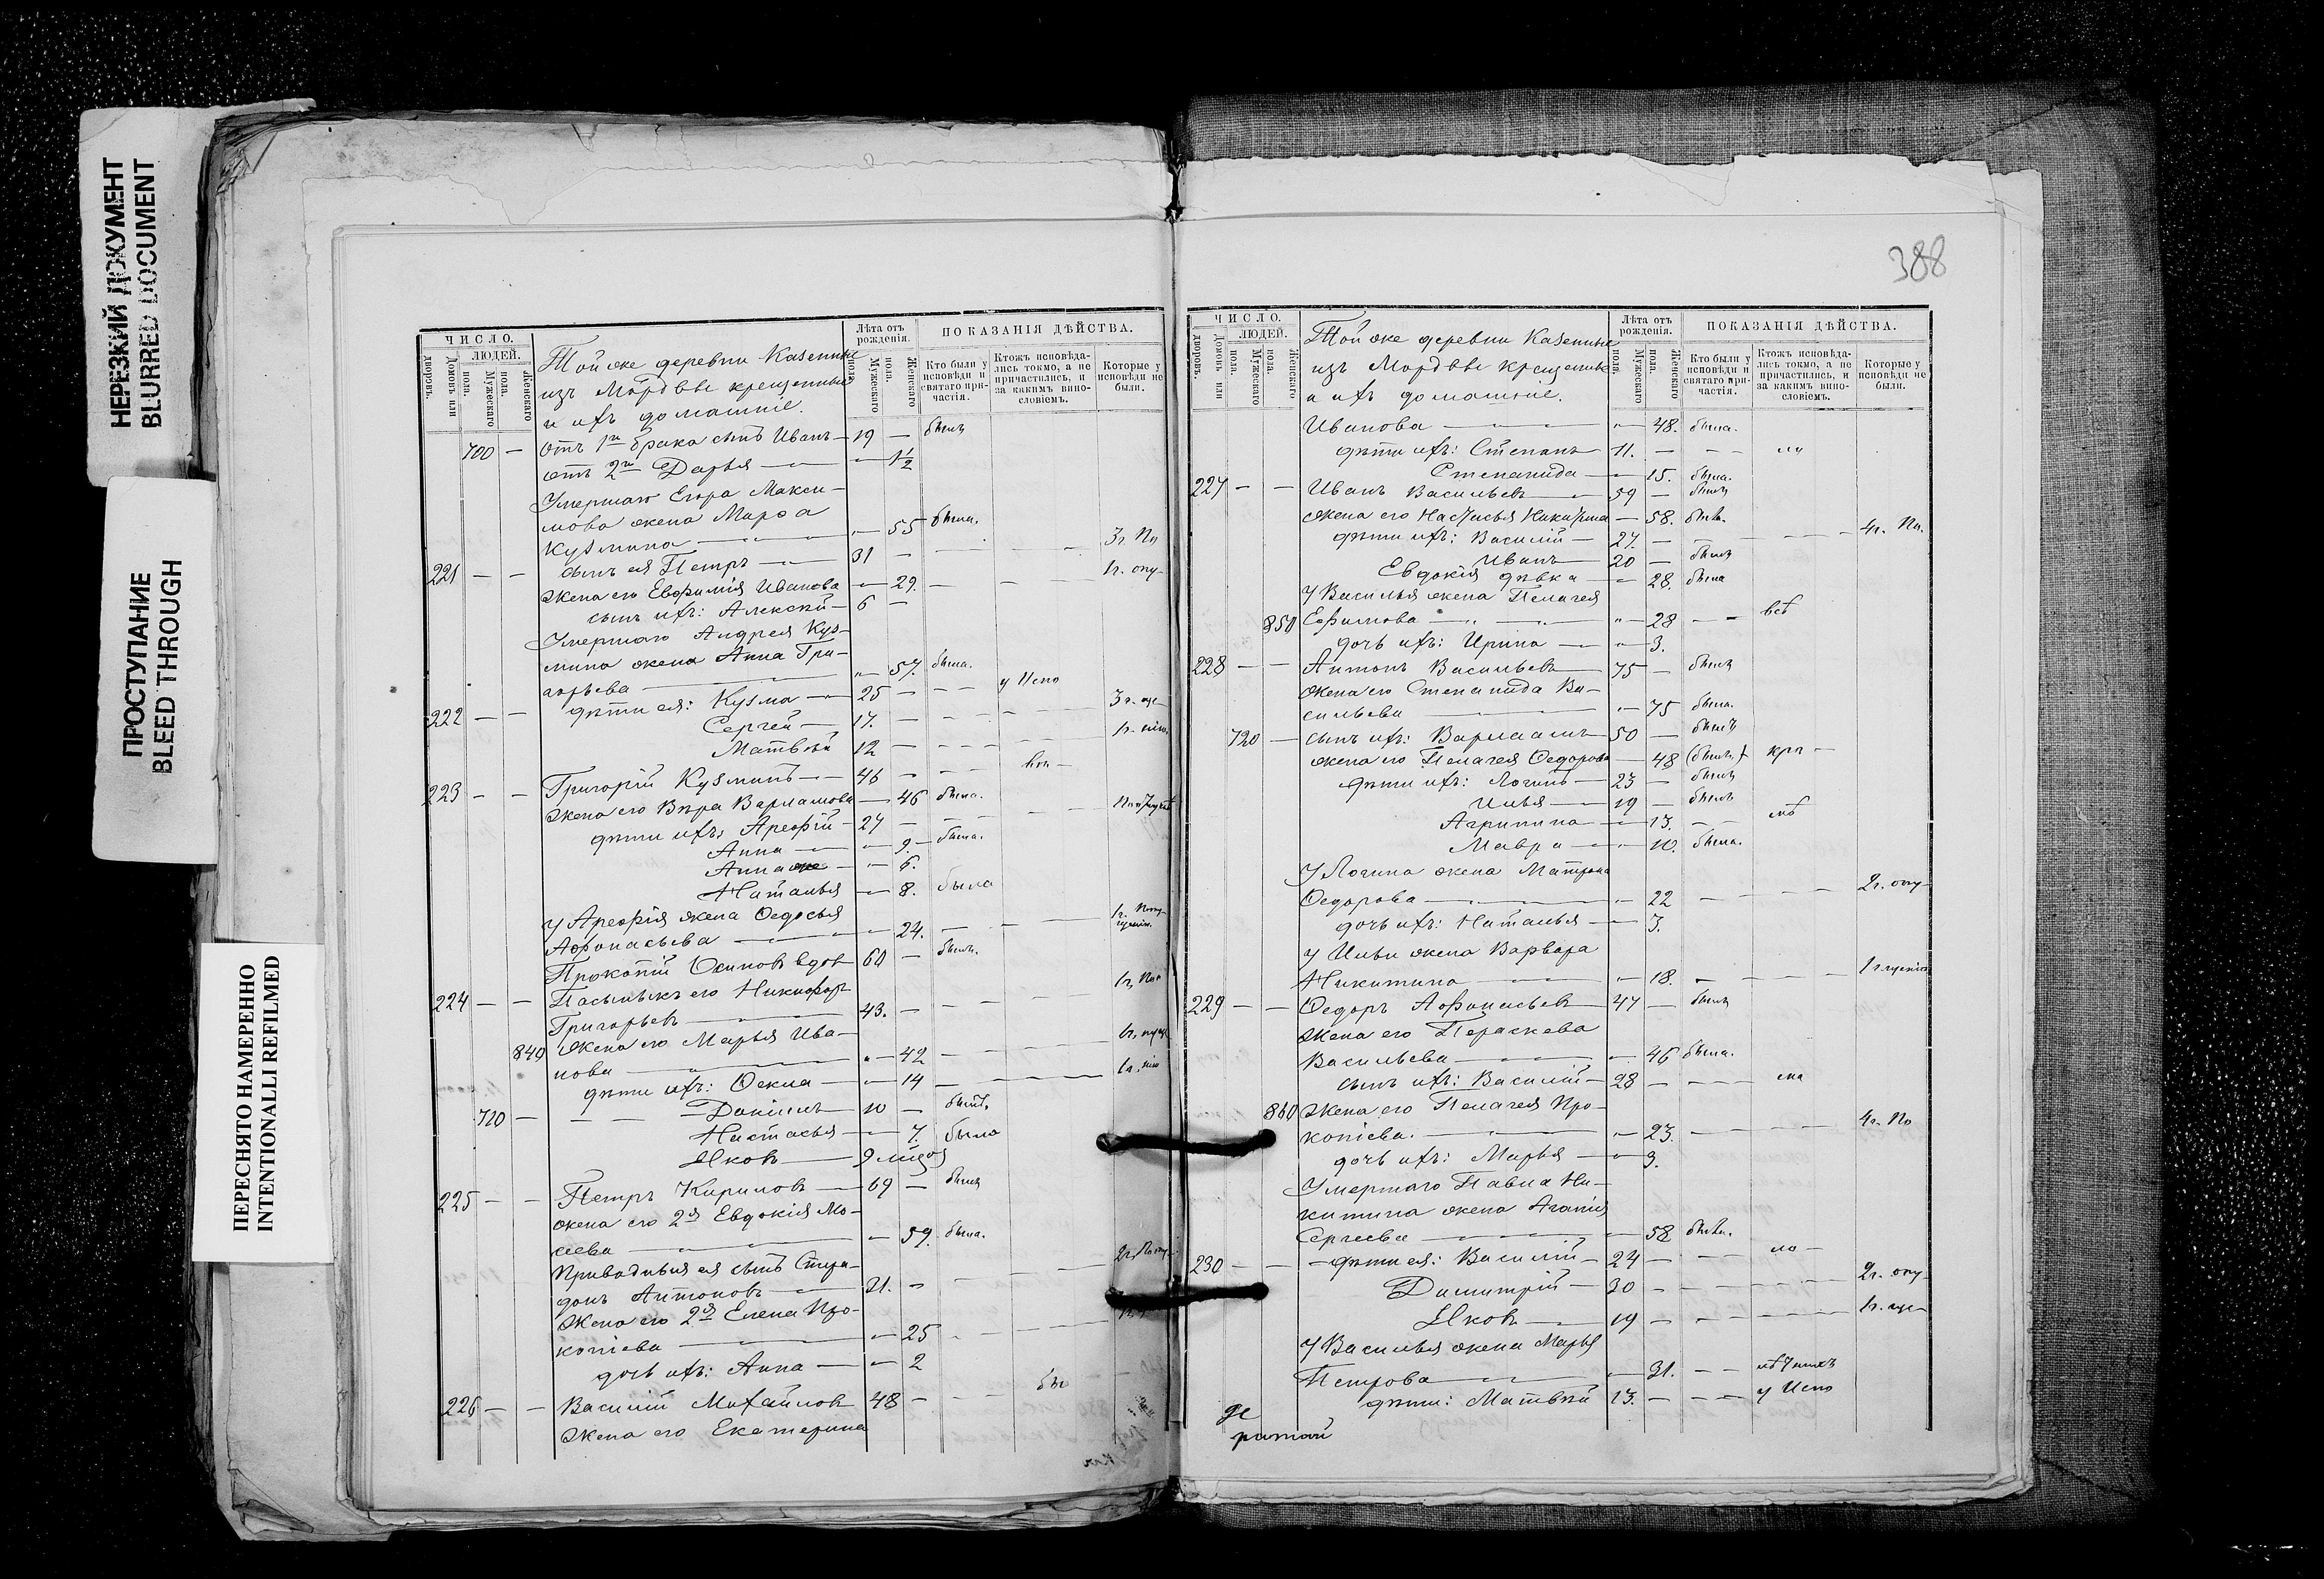 НЕРЕЗКИЙ ДОКУМЕНТ
BLURRED DOCUMENT
ПРОСТУПАНИЕ
BLEED THROUGH
ПЕРЕСНЯТО НАМЕРЕННО
INTENTIONALLI REFILMED
ЧИСЛО.
ЛЮДЕЙ.
Домовъ или дворовъ.
Мужескаго пола.
Женскаго пола.
Той же деревни Казенные
изъ Мордвы крещенные
и ихъ домашніе.
Лѣта отъ рожденія.
Мужескаго пола.
Женскаго пола.
ПОКАЗАНІЯ ДѢЙСТВА.
Кто были у исповѣди и святаго причастія.
Ктожъ исповѣдались токмо, а не причастились, и за какимъ винословіемъ.
Которые у исповѣди не были.
700 — отъ 1го брака сынъ Иванъ — 19 — былъ
отъ 2го Дарья — — 1½
Умершаго Егора Макси-
мова жена Марѳа
Кузмина — — 55 была.
221 — — сынъ ея Петръ — 31 — — — 3г. По
жена его Евфимія Иванова — 29. — — — 1г. опу-
сынъ ихъ: Алексѣй — 6 —
Умершаго Андрея Куз-
мина жена Анна Гри-
горьева — — 57. была.
222 — — дѣти ея: Кузма — 25 — — — у Испо
Сергей — 17. — — — 3г. ще-
Матвѣй 12 — — — 1г. нію.
223 — — Григорій Кузминъ — 46 — — —
жена его Вѣра Варламова — 46 была.
дѣти ихъ: Ареѳій — 27 — — —
Анна — — 9. — была.
Анна же — — 6.
Наталья — 8. была
У Ареѳія жена Ѳедосья
Аѳонасьева — — 24. — — — 1г. Поопущенію.
Прокопій Осиповъ вдов 60 — былъ.
224 — — Пасынокъ его Никифоръ
Григорьевъ — 43. — — — 1г. Поо
840 жена его Марья Ива-
нова — — 42 — — — 1г. пущ
дѣти ихъ: Ѳекла — — 14 — — — 1г. нію
710 — — — Даніилъ 10 — былъ.
Настасья — — 7. была
Яковъ — 9 мцов
225 — — Петръ Кириловъ — 69 — былъ
жена его 2я Евдокія Мо-
сеева — — 59. была.
Приводивыя ея сынъ Спири-
донъ Антоновъ — 31. — — — 2г. Поопу-
жена его 2я Елена Про-
копіева — — 25 — — —
дочь ихъ: Анна — — 2
226 — — Василій Михайловъ 48 — — —
жена его Екатерина
388
ЧИСЛО.
ЛЮДЕЙ.
Домовъ или дворовъ.
Мужескаго пола.
Женскаго пола.
Той же деревни Казенные
изъ Мордвы крещенные
и ихъ домашніе.
Лѣта отъ рожденія.
Мужескаго пола.
Женскаго пола.
ПОКАЗАНІЯ ДѢЙСТВА.
Кто были у исповѣди и святаго причастія.
Ктожъ исповѣдались токмо, а не причастились, и за какимъ винословіемъ.
Которые у исповѣди не были.
Иванова — — 48. была.
дѣти ихъ: Степанъ 11. — — —
Степанида — — 15. была.
227 — — Иванъ Васильевъ — 59 — былъ
жена его Настасья Никитина — 58. была.
дѣти ихъ: Василій — 27. — — — 4г. По.
Иванъ — 20 — былъ
Евдокія дѣвка — — 28. была
У Василья жена Пелагея
850 Ефимова — — 28 — — всѣ
дочь ихъ: Ирина — — 3.
228 — — Антонъ Васильевъ — 75 — былъ
жена его Степанида Ва-
сильева — — 75 была.
720 — сынъ ихъ: Варлаамъ 50 — былъ
жена его Пелагея Ѳедорова — 48 (былъ)
дѣти ихъ: Логинъ — 23 — былъ
Илья — 19 — былъ
Агрипина — — 13. — —
Мавра — — 10. была.
У Логина жена Матрона
Ѳедорова — — 22 — — — 2г. опу-
дочь ихъ: Наталья — 3.
У Ильи жена Варвара
Никитина — — 18. — — — 1г. щенію
229 — — Ѳедоръ Аѳонасьевъ — 47 — былъ
жена его Параскева
Васильева — — 46 была.
сынъ ихъ: Василій — 28 — — —
860 жена его Пелагея Про-
копіева. — — 23. — — — 4г. По
дочь ихъ: Марья — — 3.
Умершаго Павла Ни-
китина жена Агапія
Сергеева — — 58 была.
230 — — дѣти ея: Василій — 24 — —
Димитрій — 30 — — — 2г. опу-
Яковъ — 19 — — — 1г. ще-
У Василья жена Марья
Петрова — — 31. — —
дѣти: Матвѣй 13. — — — у Испо